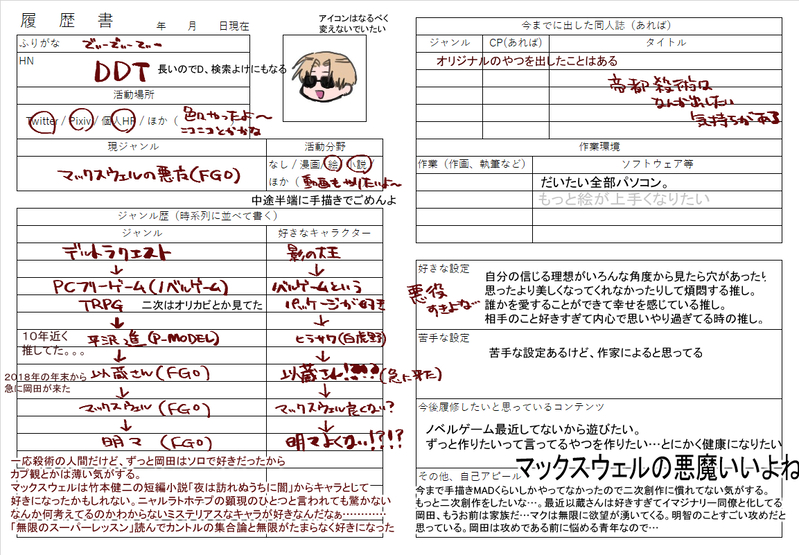 履歴書
年 月 日現在
アイコンはなるべく
変えないでいたい
ふりがな
でぃーでぃーてぃー
HN
DDT 長いのでD、検索よけにもなる
活動場所
Twitter / Pixiv / 個人HP / ほか（色々やったよ〜
ニコニコとかかな
現ジャンル
活動分野
マックスウェルの悪魔(FGO)
なし / 漫画 / 絵 / 小説 /
ほか（動画もやりたいよ〜
中途半端に手描きでごめんよ
ジャンル歴（時系列に並べて書く）
ジャンル
好きなキャラクター
デルトラクエスト
影の大王
↓
↓
PCフリーゲーム(ノベルゲーム)
ノベルゲームという
TRPG 二次はオリカビとか見てた
パッケージが好き
↓
↓
10年近く
推してた。。。
平沢進(P-MODEL)
ヒラサワ(白虎野)
↓
↓
2018年の年末から
急に岡田が来た
以蔵さん(FGO)
以蔵さん!!!!!(急に来た)
↓
↓
マックスウェル(FGO)
マックスウェル良くない?
↓
↓
明マ(FGO)
明マよくない!?!?
一応殺術の人間だけど、ずっと岡田はソロで好きだったから
カプ観とかは薄い気がする。
マックスウェルは竹本健二の短編小説「夜は訪れぬうちに闇」からキャラとして
好きになったかもしれない。ニャルラトホテプの顕現のひとつと言われても驚かない
なんか何考えてるのかわからないミステリアスなキャラが好きなんだなぁ…………
「無限のスーパーレッスン」読んでカントルの集合論と無限がたまらなく好きになった
今までに出した同人誌（あれば）
ジャンル
CP(あれば)
タイトル
オリジナルのやつを出したことはある
帝都殺術は
なんか出したい
気持ちがある
作業環境
作業（作画、執筆など）
ソフトウェア等
だいたい全部パソコン。
もっと絵が上手くなりたい
好きな設定
自分の信じる理想がいろんな角度から見たら穴があったり、
思ったより美しくなってくれなかったりして煩悶する推し。
誰かを愛することができて幸せを感じている推し。
相手のこと好きすぎて内心で思いやり過ぎてる時の推し。
悪役
すきよね…
苦手な設定
苦手な設定あるけど、作家によると思ってる
今後履修したいと思っているコンテンツ
ノベルゲーム最近してないから遊びたい。
ずっと作りたいって言ってるやつを作りたい…とにかく健康になりたい
その他、自己アピール
マックスウェルの悪魔いいよね
今まで手描きMADくらいしかやってなかったので二次創作に慣れてない気がする。
もっと二次創作をしたいな…。最近以蔵さんは好きすぎてイマジナリー同僚と化してる
岡田、もうお前は家族だ…マクは無限に欲望が湧いてくる。明智のことすごい攻めだと
思っている。岡田は攻めである前に悩める青年なので…